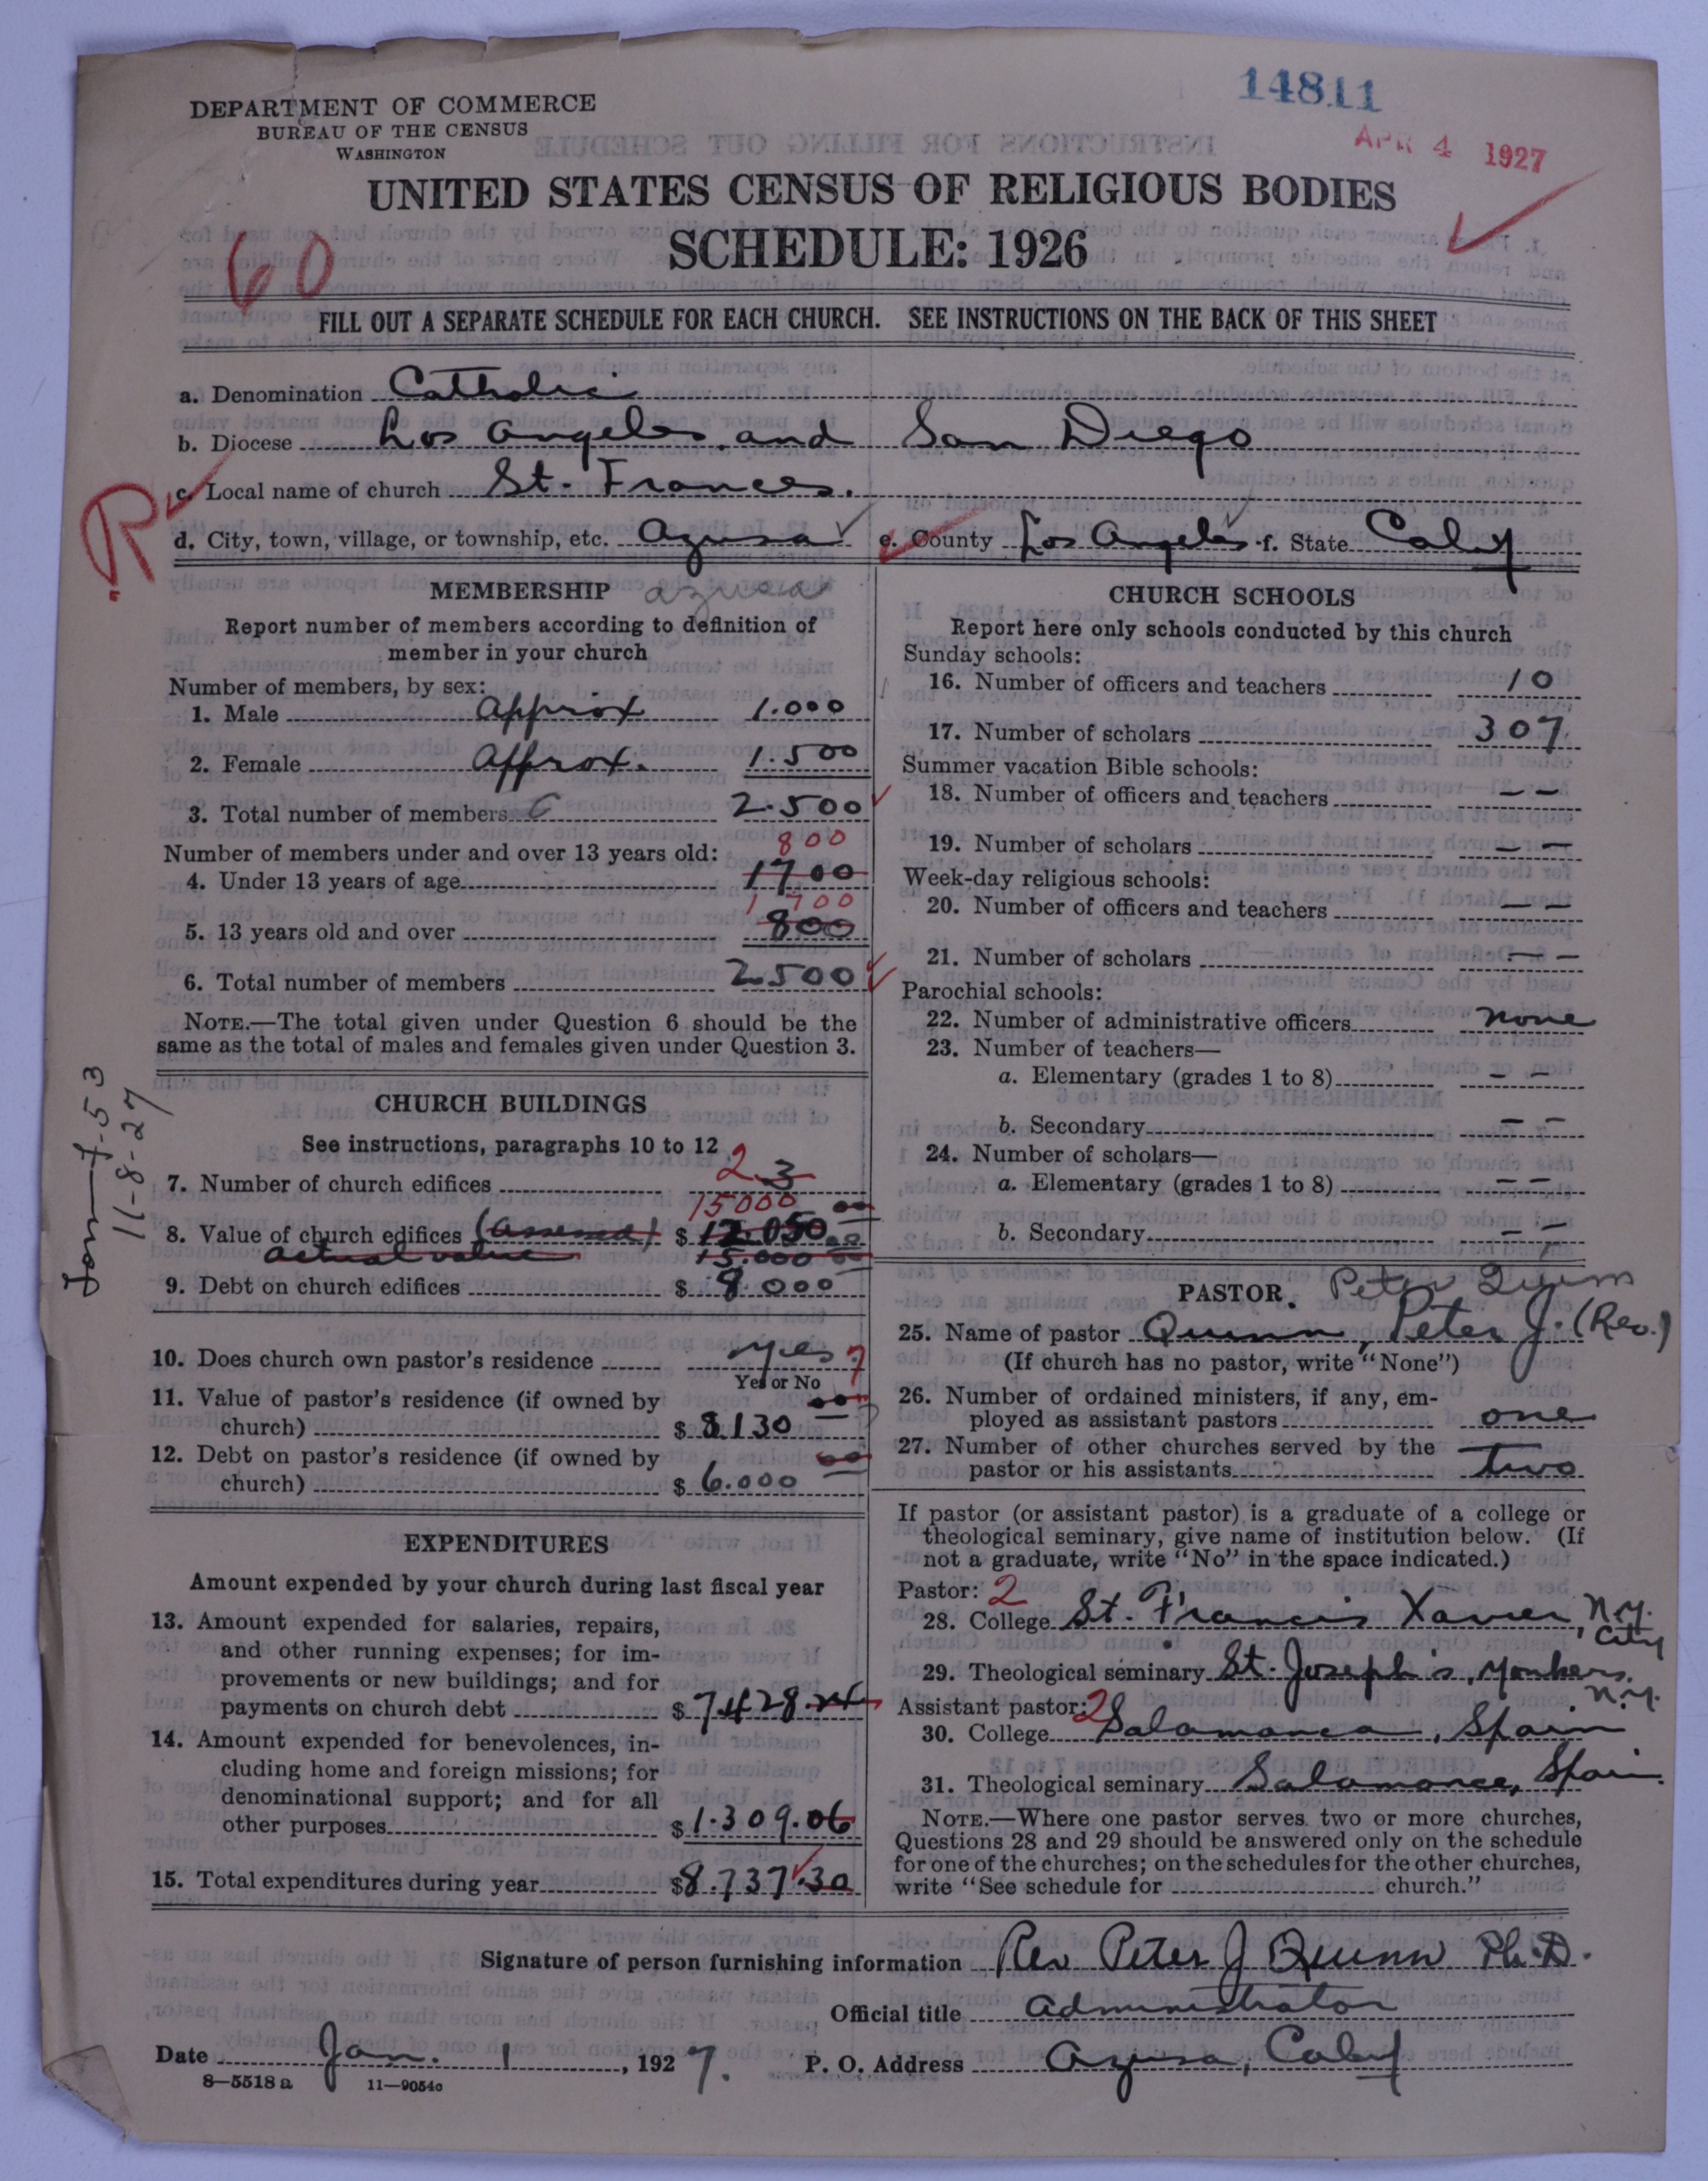 14811
DEPARTMENT OF COMMERCE
BUREAU OF THE CENSUS
WASHINGTON
APR 4 1927
UNITED STATES CENSUS OF RELIGIOUS BODIES
SCHEDULE: 1926
60
FILL OUT A SEPARATE SCHEDULE FOR EACH CHURCH. SEE INSTRUCTIONS ON THE BACK OF THIS SHEET
a. Denomination Catholic
b. Diocese Los Angeles and San Diego
c. Local name of church St. Frances.
R
d. City, town, village, or township, etc. Azusa e. County Los Angeles f. State Calif
MEMBERSHIP azusa
Report number of members according to definition of
member in your church
Number of members, by sex:
1. Male Approx 1.000
2. Female Approx. 1.500
3. Total number of members C 2.500
800
Number of members under and over 13 years old:
4. Under 13 years of age 1700
1700
5. 13 years old and over 800
6. Total number of members 2500
NOTE.—The total given under Question 6 should be the
same as the total of males and females given under Question 3.
CHURCH BUILDINGS
See instructions, paragraphs 10 to 12
7. Number of church edifices 2 3
15000 00
8. Value of church edifices (assessed) $ 12.050.00
actual value 15.000
9. Debt on church edifices $ 8.000
10. Does church own pastor's residence yes
Yes or No
11. Value of pastor's residence (if owned by
church) $ 8.130 00
12. Debt on pastor's residence (if owned by
church) $ 6.000 00
EXPENDITURES
Amount expended by your church during last fiscal year
13. Amount expended for salaries, repairs,
and other running expenses; for im-
provements or new buildings; and for
payments on church debt $ 7428.24
14. Amount expended for benevolences, in-
cluding home and foreign missions; for
denominational support; and for all
other purposes $ 1.309.06
15. Total expenditures during year $8.737.30
11-8-27
CHURCH SCHOOLS
Report here only schools conducted by this church
Sunday schools:
16. Number of officers and teachers 10
17. Number of scholars 307
Summer vacation Bible schools:
18. Number of officers and teachers – –
19. Number of scholars – –
Week-day religious schools:
20. Number of officers and teachers – –
21. Number of scholars – –
Parochial schools:
22. Number of administrative officers none
23. Number of teachers—
a. Elementary (grades 1 to 8) – –
b. Secondary – –
24. Number of scholars—
a. Elementary (grades 1 to 8) – –
b. Secondary – –
PASTOR. Peter
25. Name of pastor Quinn, Peter J. (Rev.)
(If church has no pastor, write "None")
26. Number of ordained ministers, if any, em-
ployed as assistant pastors one
27. Number of other churches served by the
pastor or his assistants two
If pastor (or assistant pastor) is a graduate of a college or
theological seminary, give name of institution below. (If
not a graduate, write "No" in the space indicated.)
Pastor: 2
28. College St. Francis Xavier, N.Y. City
29. Theological seminary St. Joseph's, Yonkers, N.Y.
Assistant pastor: 2
30. College Salamanca, Spain
31. Theological seminary Salamanca, Spain.
NOTE.—Where one pastor serves two or more churches,
Questions 28 and 29 should be answered only on the schedule
for one of the churches; on the schedules for the other churches,
write "See schedule for church."
Signature of person furnishing information Rev Peter J Quinn Ph.D.
Official title Administrator
Date Jan. 1, 1927. P. O. Address Azusa, Calif
8—5518 a 11—9054c